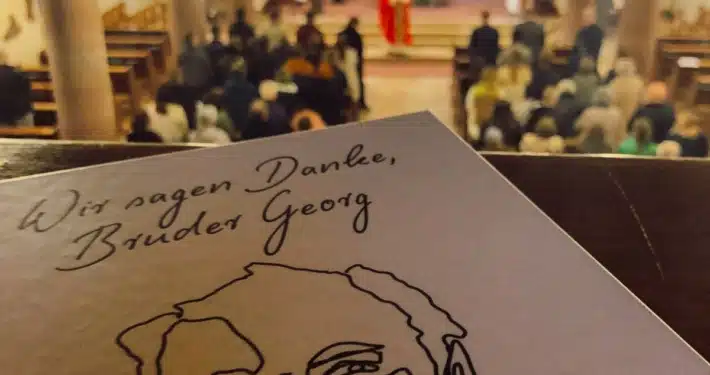 Wir sagen Danke,
Bruder Georg